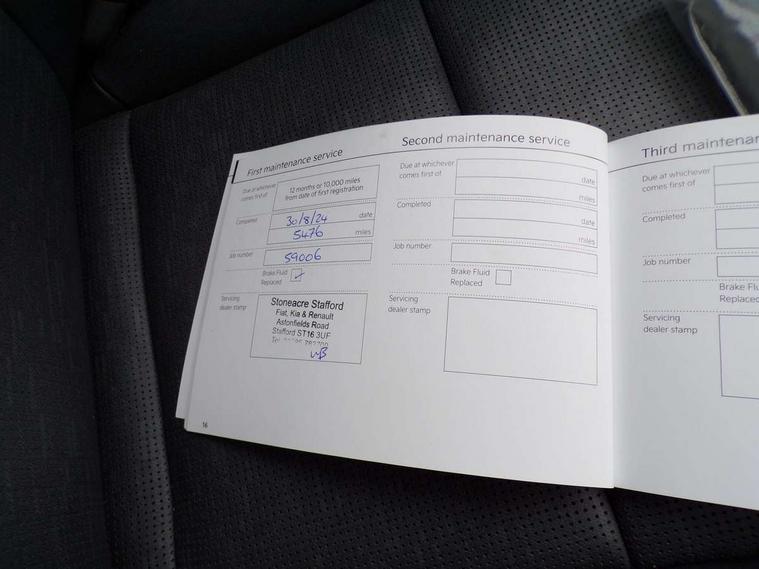 First maintenance service
Due at whichever
comes first of
12 months or 10,000 miles
from date of first registration
Completed
30/8/24 date
5476 miles
Job number
59006
Brake Fluid
Replaced
Servicing
dealer stamp
Stoneacre Stafford
Fiat, Kia & Renault
Astonfields Road
Stafford ST16 3UF
16
Second maintenance service
Due at whichever
comes first of
date
miles
Completed
date
miles
Job number
Brake Fluid
Replaced
Servicing
dealer stamp
Third
Due at whichever
comes first of
Completed
Job number
Brake
Replaced
Servicing
dealer stamp